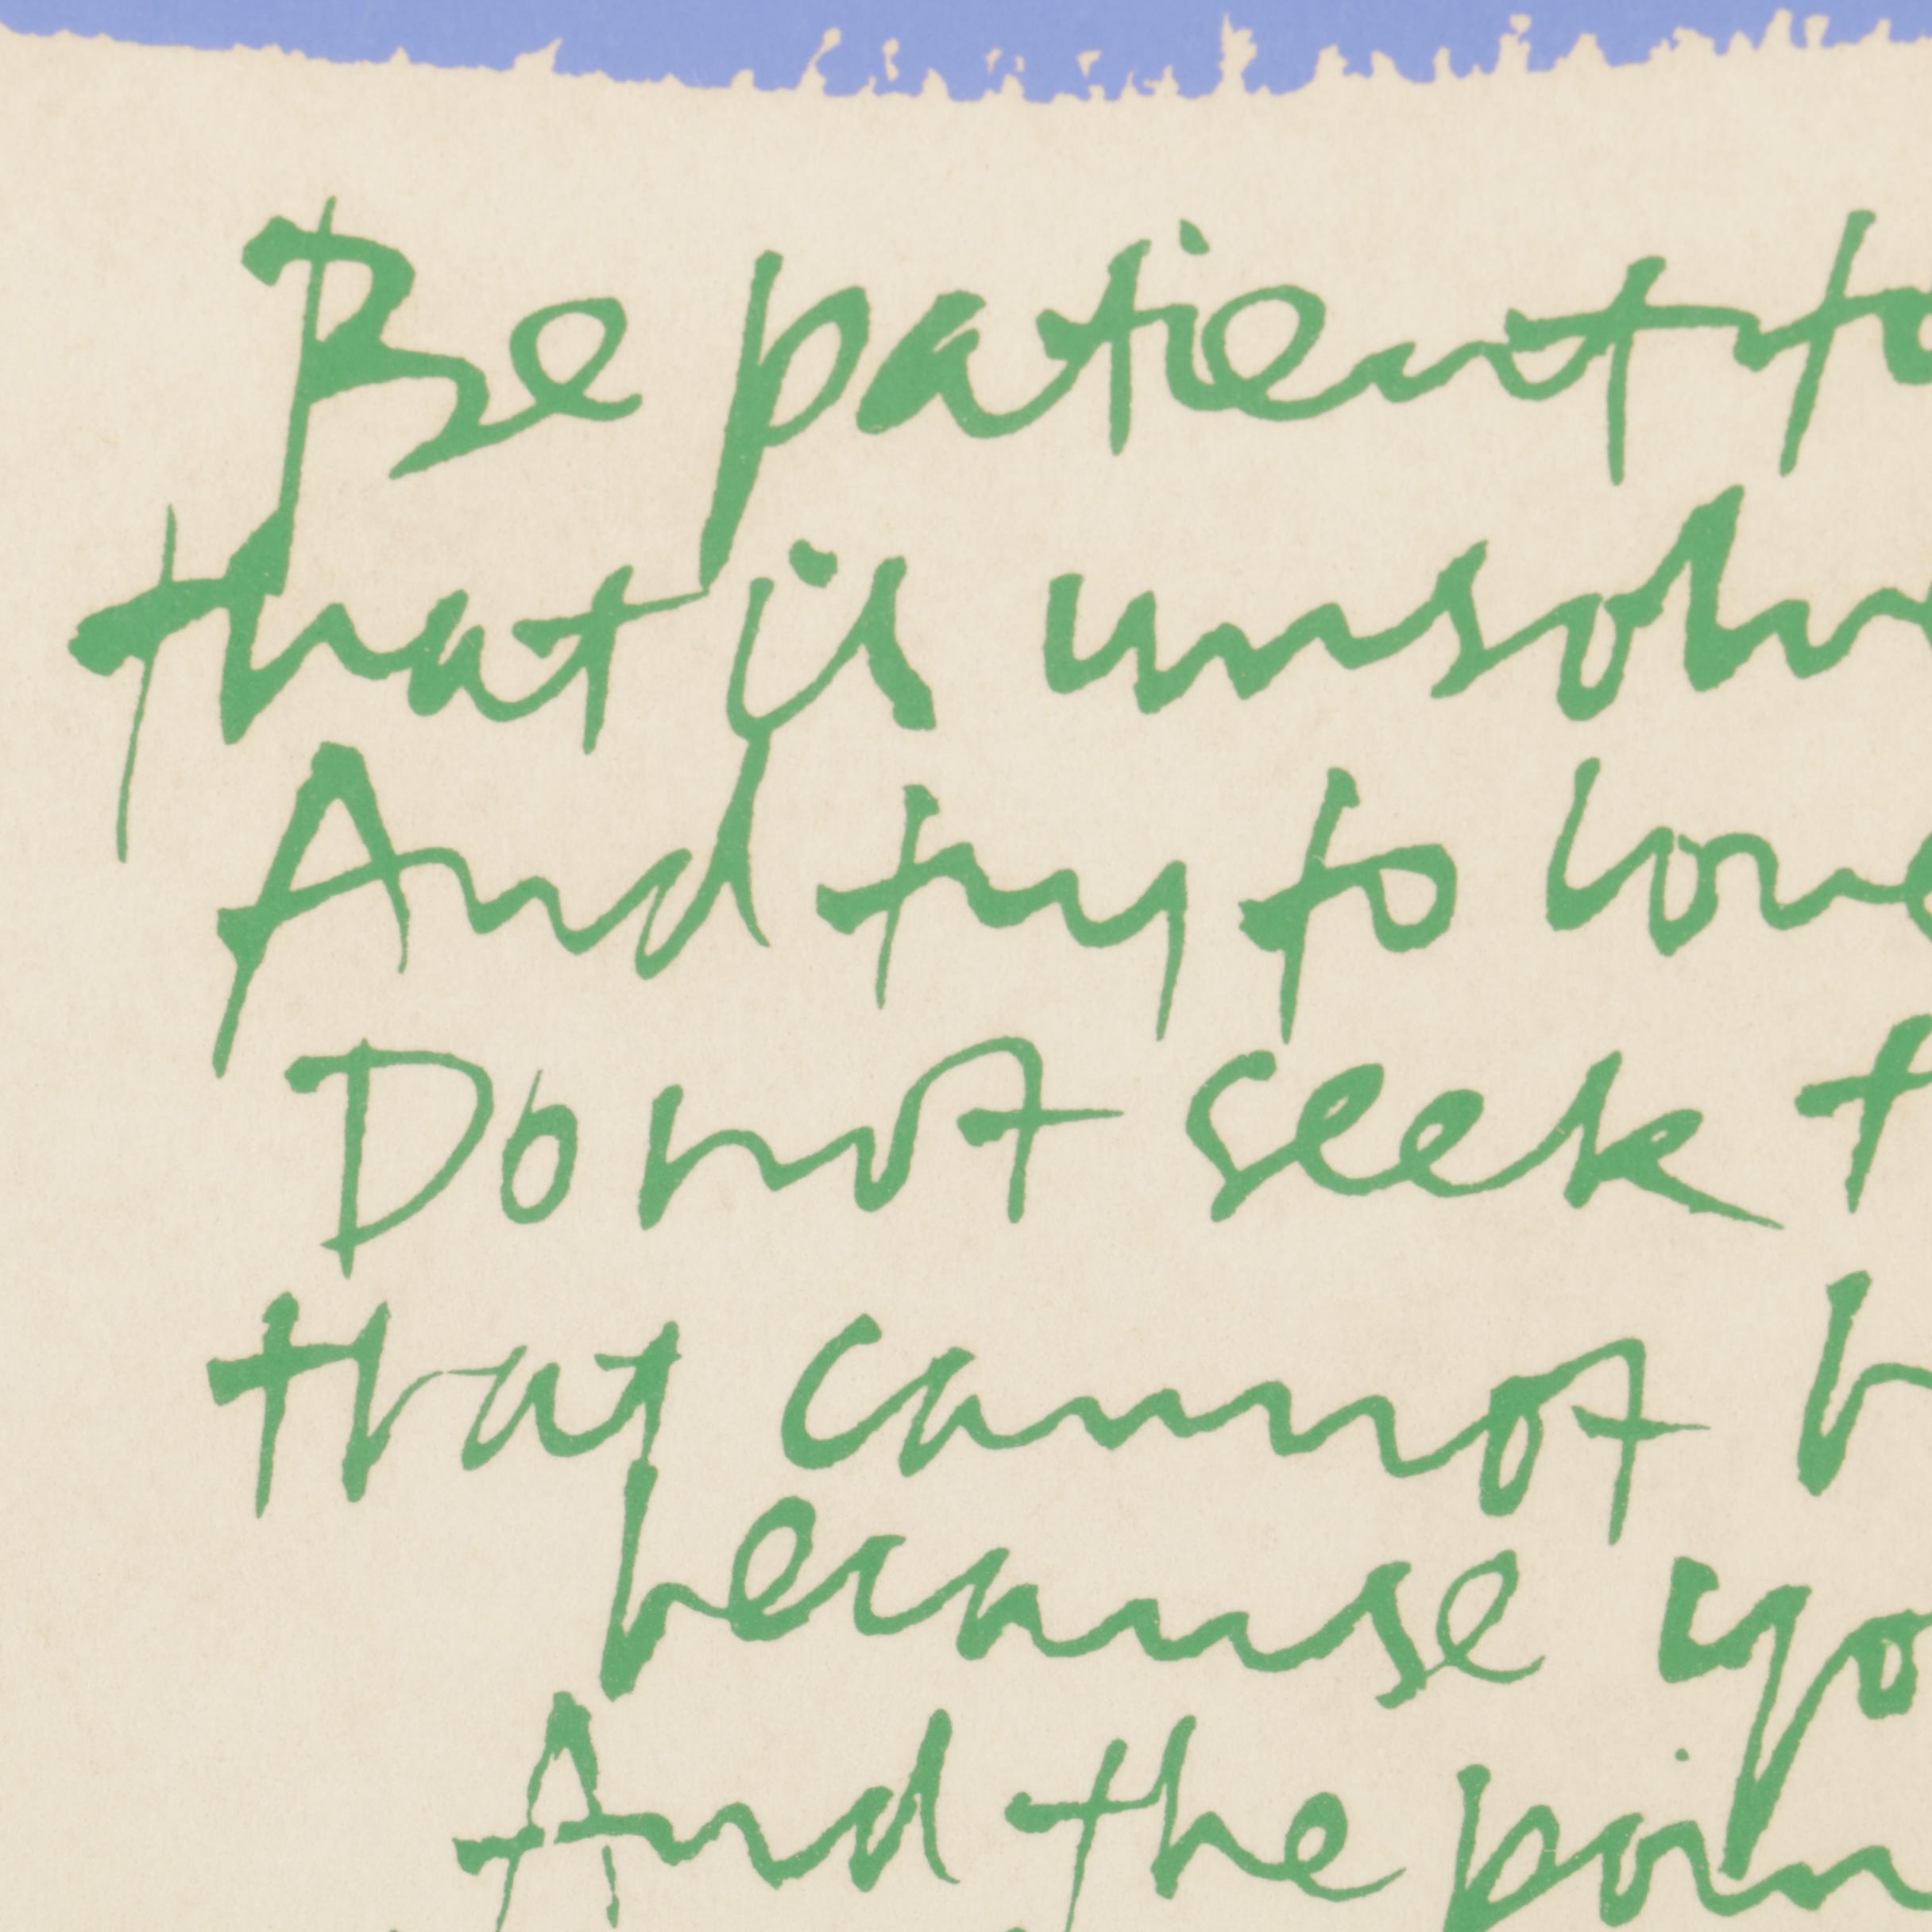 Be patient to
that is unsolv
And try to love
Do not seek t
that cannot b
because yo
And the poin